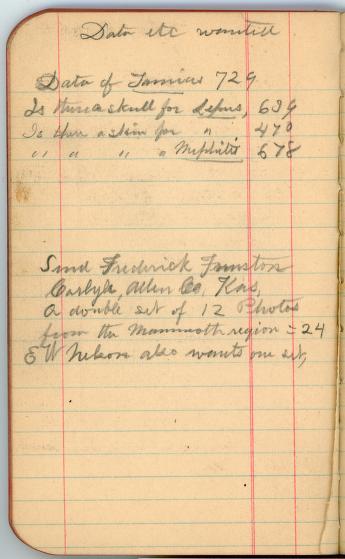 Data etc wanted
Data of Tamias 729
Is there a skull for Lepus, 639
Is there a skin for " 470
" " " " Mephitis 678
Send Frederick Funston
Carlyle, Allen Co, Kas,
a double set of 12 Photos
from the Mammoth region = 24
E W Nelson also wants one set,